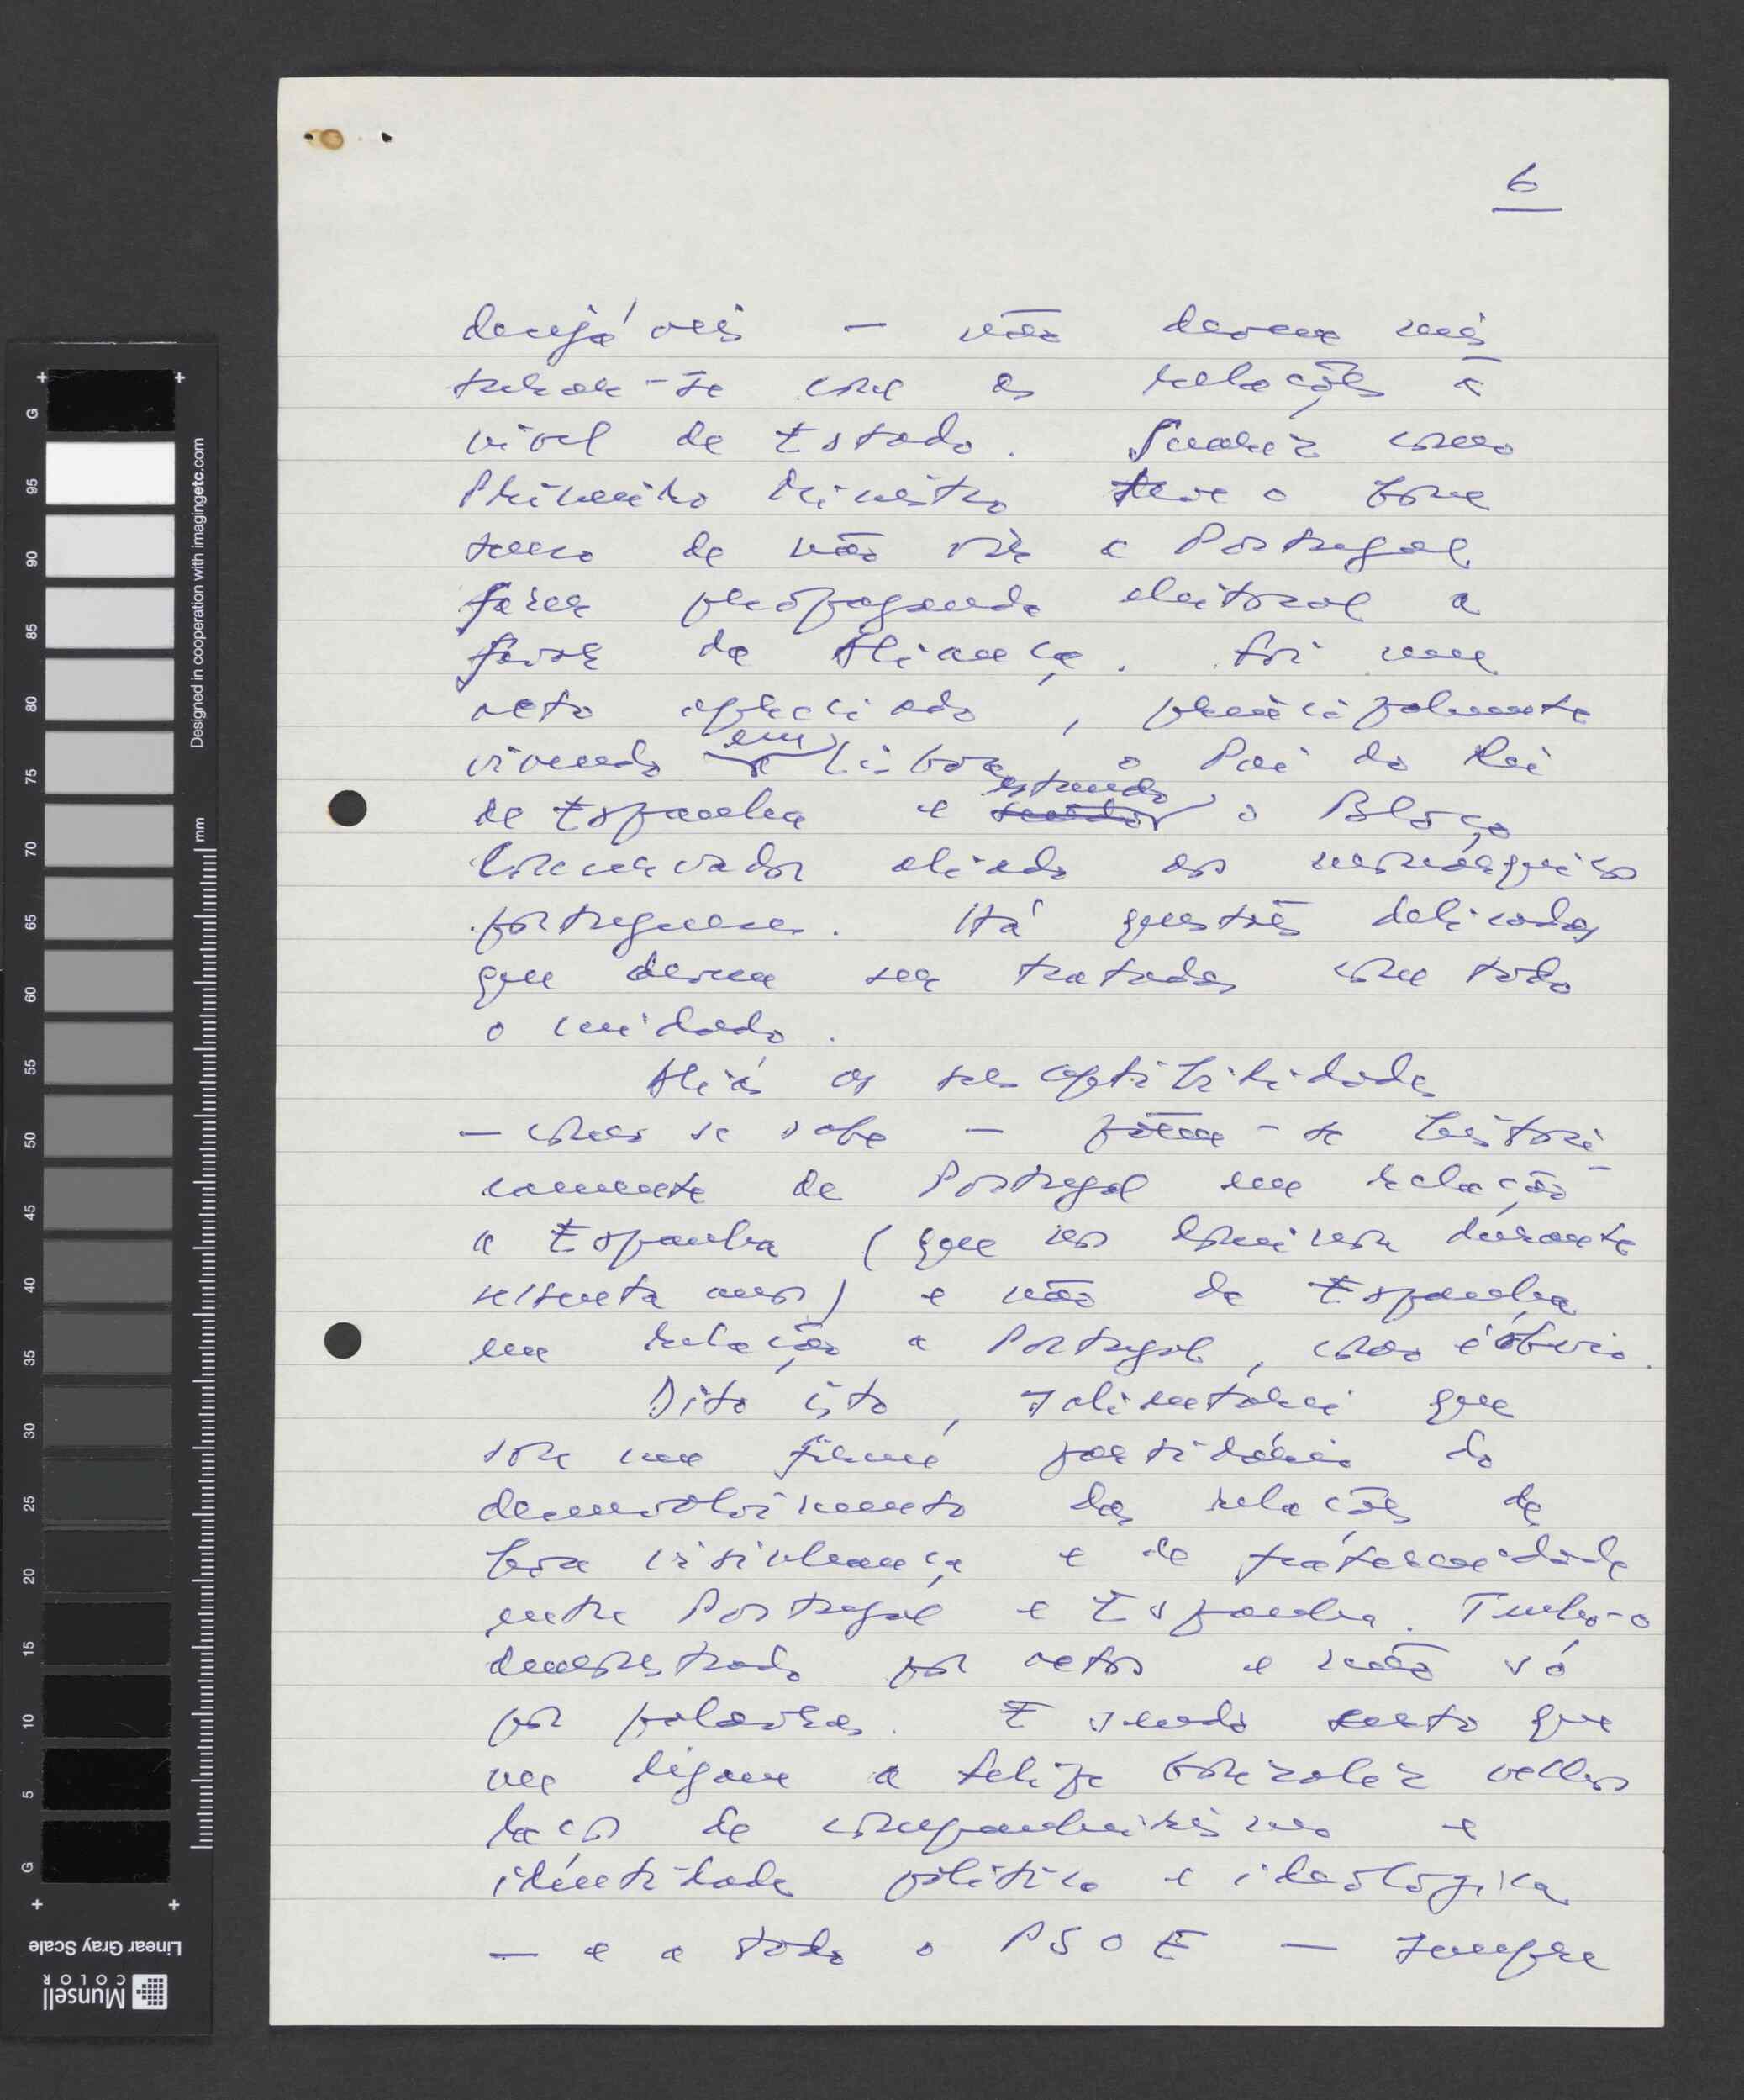 6
desejáveis — não devem mis
turar-se com as relações a
nível de Estado. Suarez como
Primeiro Ministro teve o bom
senso de não vir a Portugal
fazer propaganda eleitoral a
favor da Aliança. Foi um
acto apreciado, principalmente
vivendo em Lisboa, o Pai do Rei
de Espanha e estando o Bloco
Conservador aliado aos monárquicos
portugueses. Há questões delicadas
que devem ser tratadas com todo
o cuidado.
Aliás as susceptibilidades
— como se sabe — põem-se histori-
camente de Portugal em relação
a Espanha (que nos dominou durante
sessenta anos) e não de Espanha
em relação a Portugal, como é óbvio.
Dito isto, salientarei que
sou um firme partidário do
desenvolvimento das relações de
boa visinhança e de fraternidade
entre Portugal e Espanha. Tenho-o
demonstrado por actos e não só
por palavras. E sendo certo que
me ligam a Felipe Gonzalez velhos
laços de companheirismo e
identidade politica e ideológica
— e a todo o PSOE — sempre
Designed in cooperation with imagingetc.com
mm
G
95
90
85
80
75
70
65
60
55
50
45
40
35
30
25
20
15
10
5
G
Linear Gray Scale
Munsell
COLOR